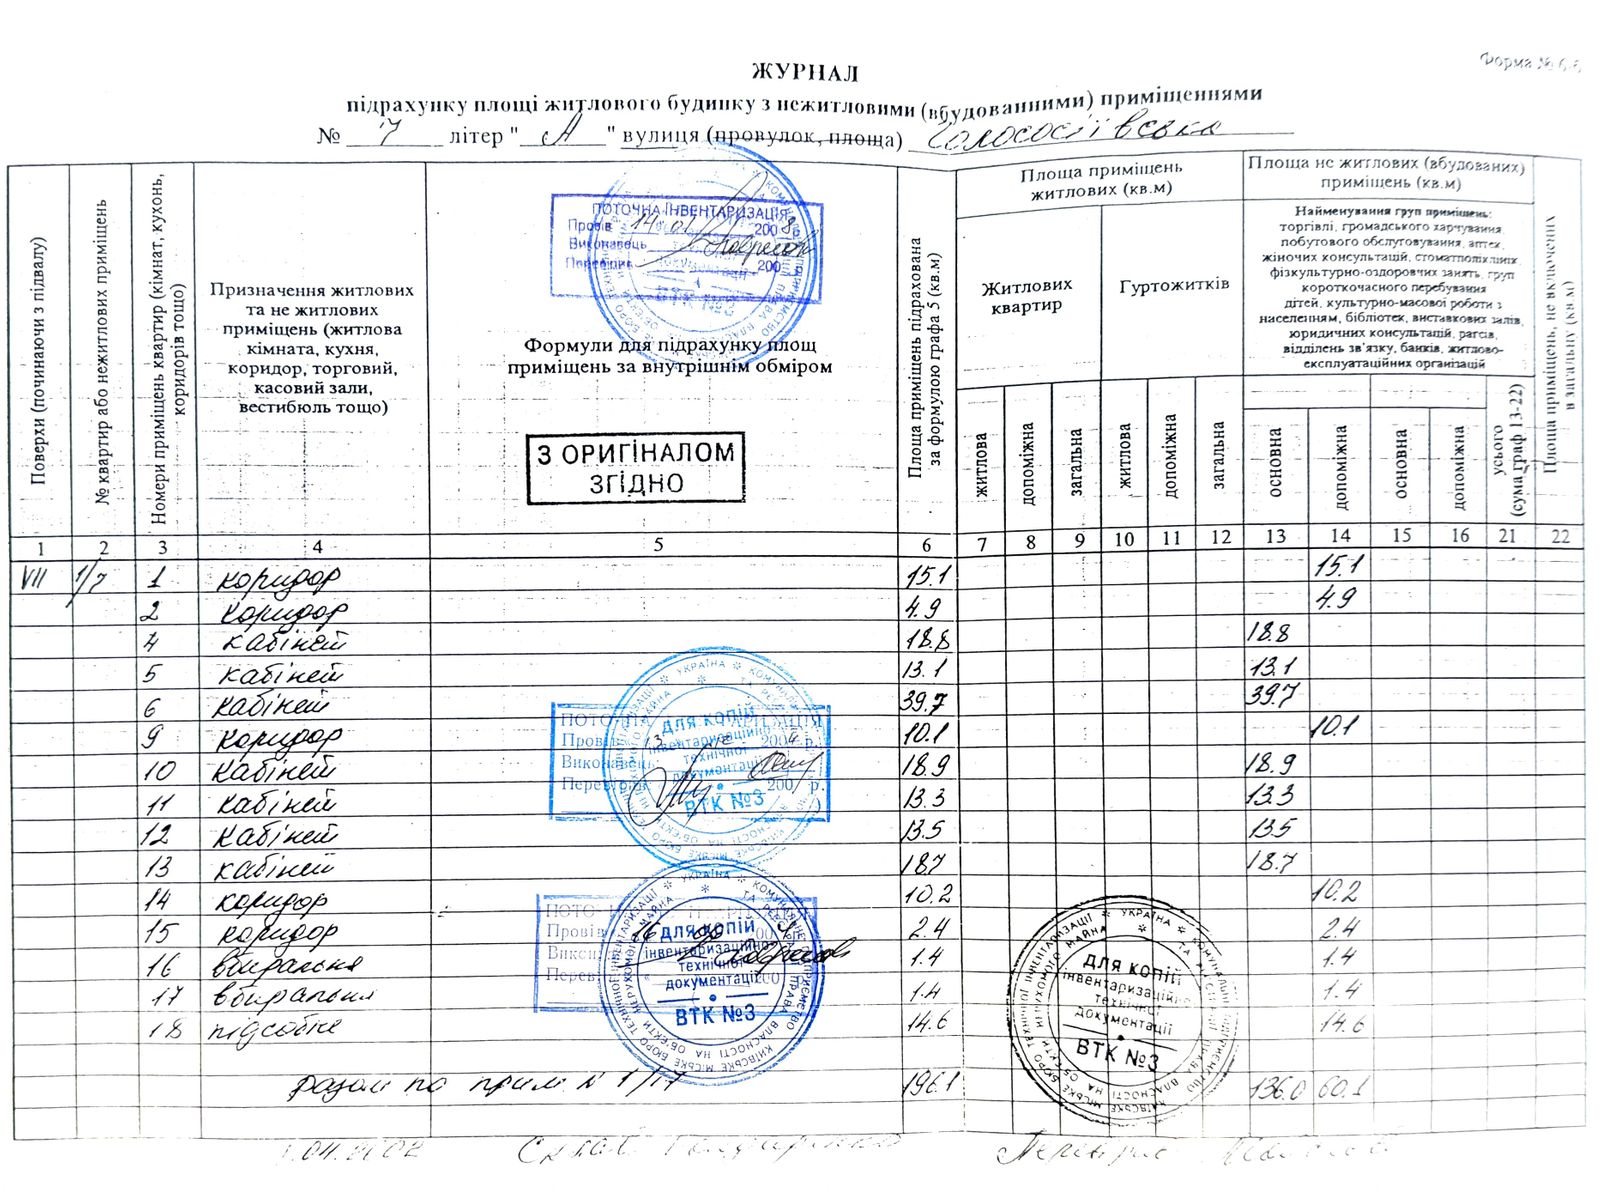 Форма № 6-б
ЖУРНАЛ
підрахунку площі житлового будинку з нежитловими (вбудованними) приміщеннями
№ 7 літер " А " вулиця (провулок, площа) Голосоіївська
Поверхи (починаючи з підвалу)
№ квартир або нежитлових приміщень
Номери приміщень квартир (кімнат, кухонь, коридорів тощо)
Призначення житлових
та не житлових
приміщень (житлова
кімната, кухня,
коридор, торговий,
касовий зали,
вестибюль тощо)
ПОТОЧНА ІНВЕНТАРИЗАЦІЯ
Провів 14 01 2008 р.
Виконавець
Перевірив 200
ВТК №3
Формули для підрахунку площ
приміщень за внутрішнім обміром
З ОРИГІНАЛОМ
ЗГІДНО
Площа приміщень підрахована
за формулою графа 5 (кв.м)
Площа приміщень
житлових (кв.м)
Житлових
квартир
Гуртожитків
житлова
допоміжна
загальна
житлова
допоміжна
загальна
Площа не житлових (вбудованих)
приміщень (кв.м)
Найменування груп приміщень:
торгівлі, громадського харчування
побутового обслуговування, аптек,
жіночих консультацій, стоматполіклінік,
фізкультурно-оздоровчих занять, груп
короткочасного перебування
дітей, культурно-масової роботи з
населенням, бібліотек, виставкових залів,
юридичних консультацій, рагсів,
відділень зв'язку, банків, житлово-
експлуатаційних організацій
основна
допоміжна
основна
допоміжна
усього
(сума граф 13-22)
Площа приміщень, не включених
в загальну (кв.м)
1 2 3 4 5 6 7 8 9 10 11 12 13 14 15 16 21 22
VII 1/7 1 коридор 15.1 15.1
2 коридор 4.9 4.9
4 кабінет 18.8 18.8
5 кабінет 13.1 13.1
6 кабінет 39.7 39.7
9 коридор 10.1 10.1
10 кабінет 18.9 18.9
11 кабінет 13.3 13.3
12 кабінет 13.5 13.5
13 кабінет 18.7 18.7
14 коридор 10.2 10.2
15 коридор 2.4 2.4
16 вбиральня 1.4 1.4
17 вбиральня 1.4 1.4
18 підсобне 14.6 14.6
разом по прим N 1/17 196.1 136.0 60.1
УКРАЇНА
ДЛЯ КОПІЙ
інвентаризаційно
технічної
документації
ВТК №3
Провів
Виконавець
Перевірив 200 р.
УКРАЇНА
ДЛЯ КОПІЙ
інвентаризаційно
технічної
документації
ВТК №3
Провів 16
УКРАЇНА
ДЛЯ КОПІЙ
інвентаризаційно
технічної
документації
ВТК №3